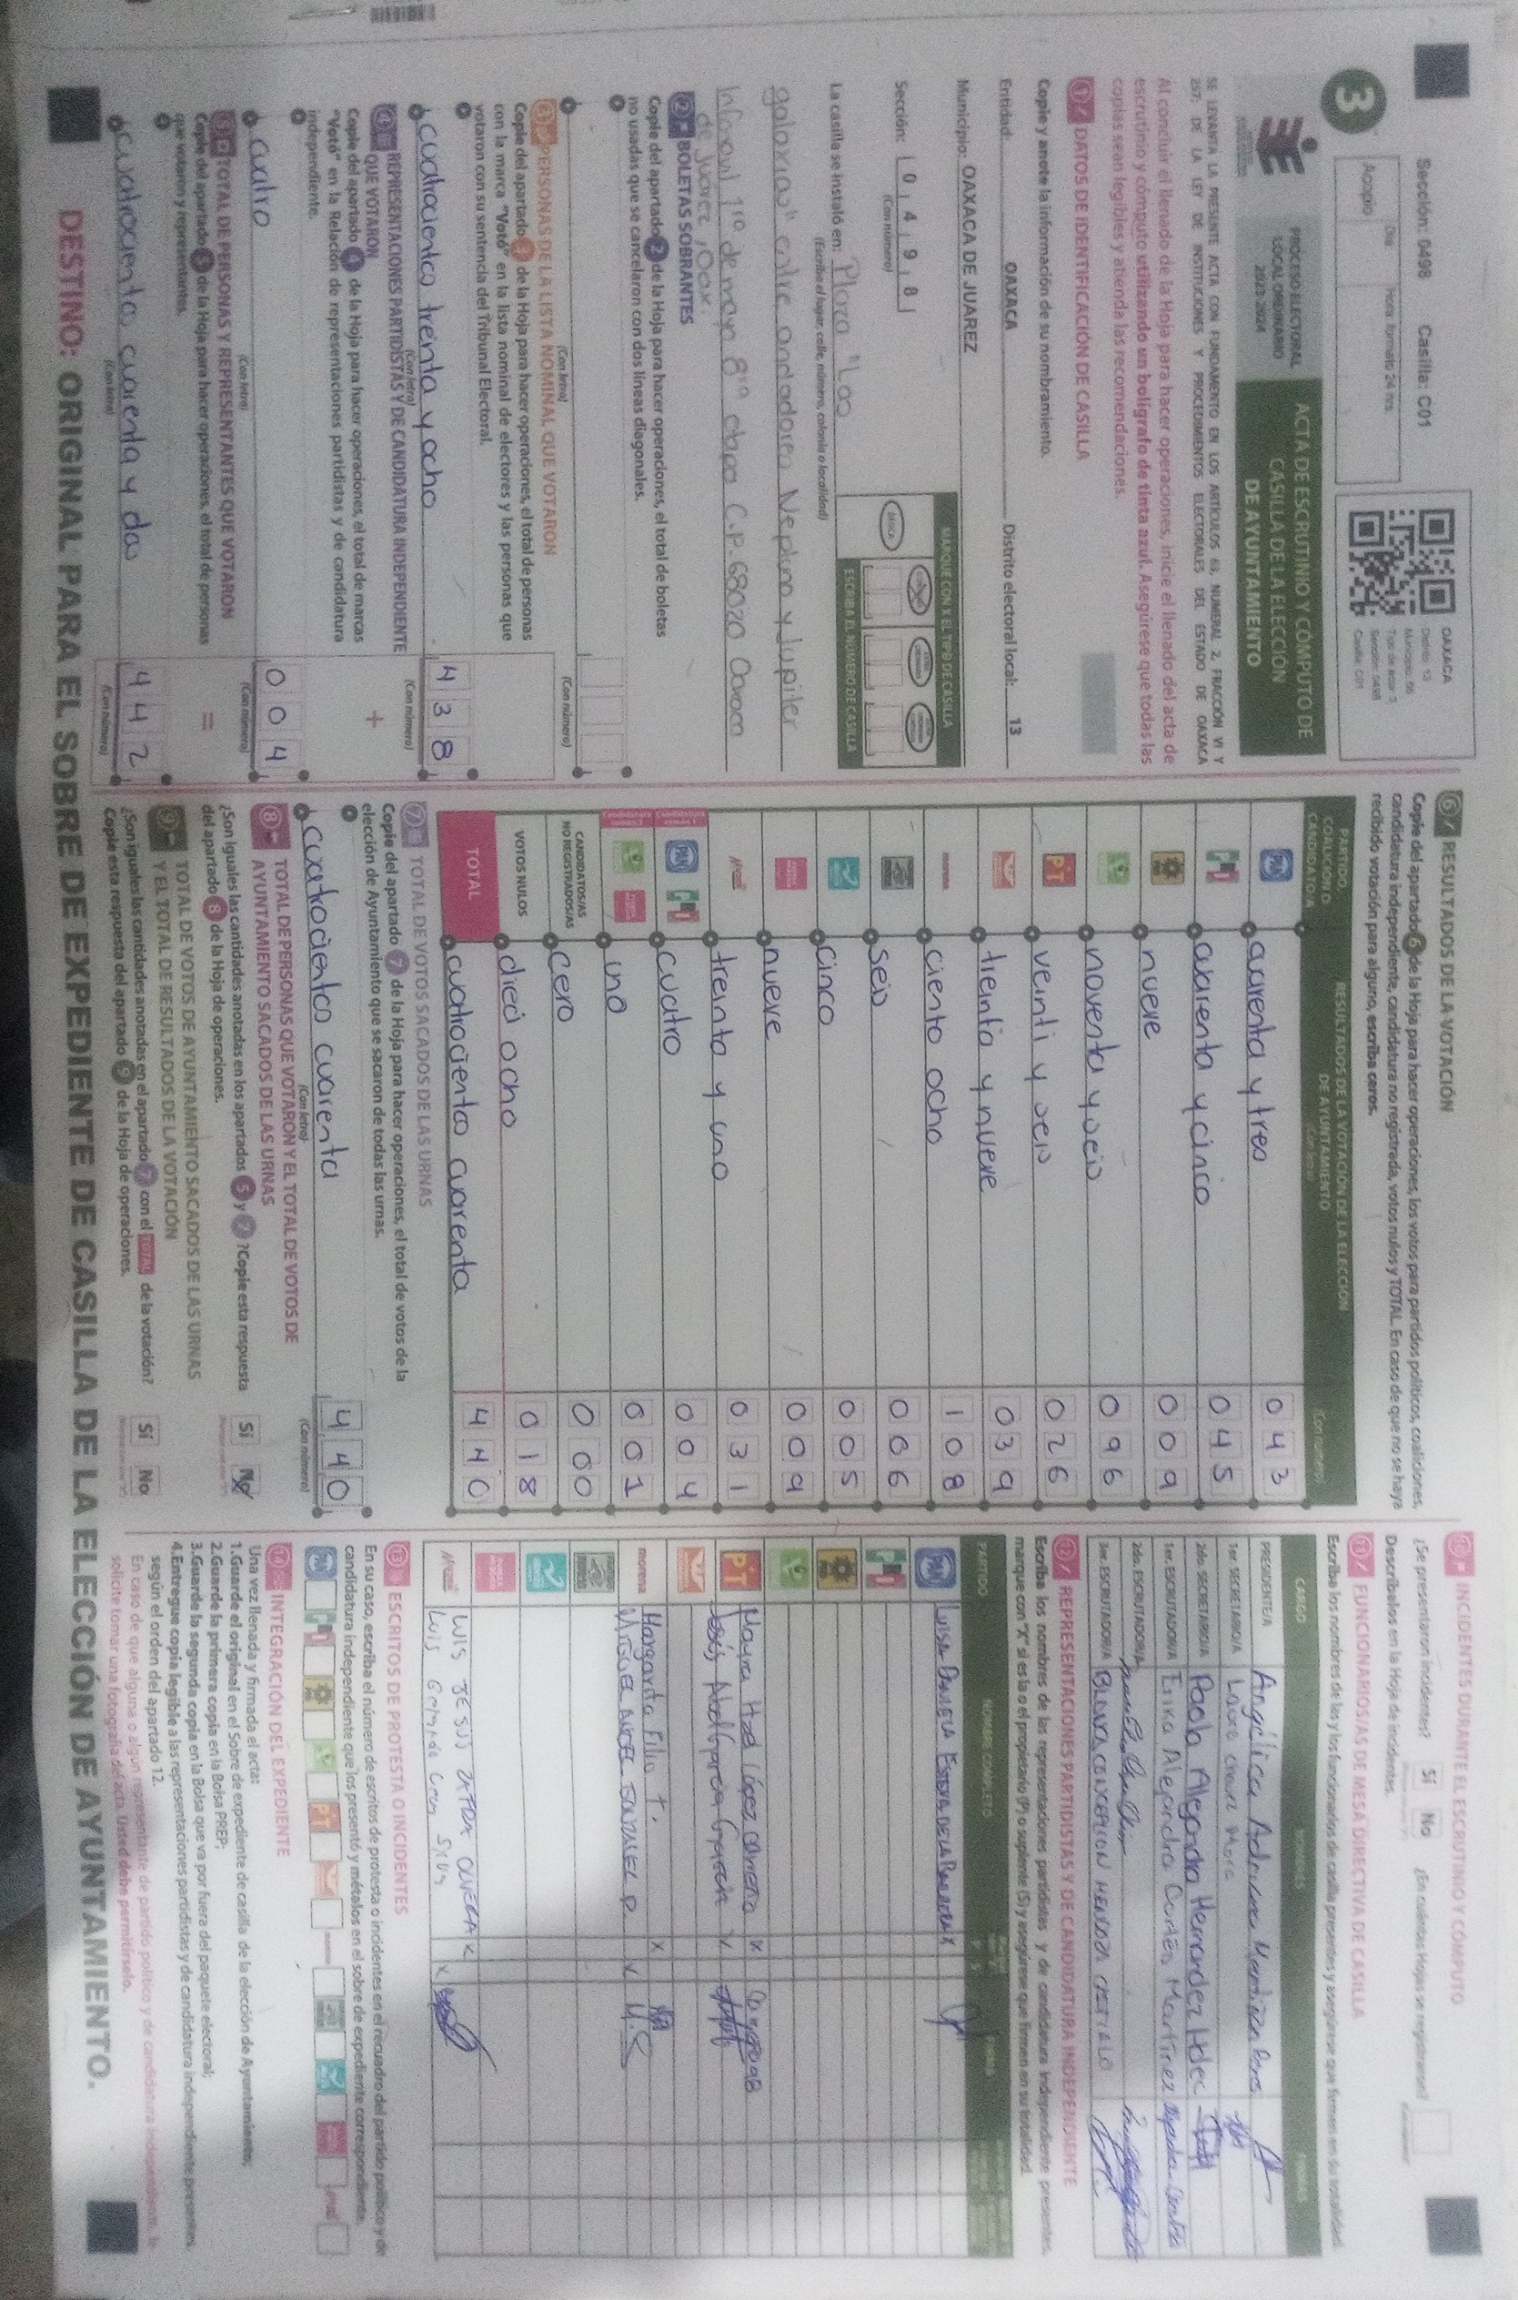 Sección: 0498 Casilla: C01
Día Hora formato 24 hrs.
Acopio
OAXACA
Distrito: 13
Casilla: C01
3
PROCESO ELECTORAL
LOCAL ORDINARIO
2023-2024
ACTA DE ESCRUTINIO Y CÓMPUTO DE
CASILLA DE LA ELECCIÓN
DE AYUNTAMIENTO
SE LEVANTA LA PRESENTE ACTA CON FUNDAMENTO EN LOS ARTÍCULOS 63, NUMERAL 2, FRACCIÓN VI Y
257; DE LA LEY DE INSTITUCIONES Y PROCEDIMIENTOS ELECTORALES DEL ESTADO DE OAXACA
Al concluir el llenado de la Hoja para hacer operaciones, inicie el llenado del acta de
escrutinio y cómputo utilizando un bolígrafo de tinta azul. Asegúrese que todas las
copias sean legibles y atienda las recomendaciones.
1 DATOS DE IDENTIFICACIÓN DE CASILLA
Copie y anote la información de su nombramiento.
Entidad: OAXACA Distrito electoral local: 13
Municipio: OAXACA DE JUAREZ
Sección: 0 4 9 8
(Con número)
MARQUE CON X EL TIPO DE CASILLA
BÁSICA
ESCRIBA EL NÚMERO DE CASILLA
La casilla se instaló en: Plaza "Las
(Escriba el lugar, calle, número, colonia o localidad)
galaxias" entre andadores Neptuno y Jupiter
Infonavit 1ro de mayo 8va etapa C.P. 68020 Oaxaca
de Juarez, Oax.
2 BOLETAS SOBRANTES
Copie del apartado 2 de la Hoja para hacer operaciones, el total de boletas
no usadas que se cancelaron con dos líneas diagonales.
(Con letra) (Con número)
3 PERSONAS DE LA LISTA NOMINAL QUE VOTARON
Copie del apartado 3 de la Hoja para hacer operaciones, el total de personas
con la marca "Votó" en la lista nominal de electores y las personas que
votaron con su sentencia del Tribunal Electoral.
cuatrocientos treinta y ocho 4 3 8
(Con letra) (Con número)
4 REPRESENTACIONES PARTIDISTAS Y DE CANDIDATURA INDEPENDIENTE
QUE VOTARON
Copie del apartado 4 de la Hoja para hacer operaciones, el total de marcas
"Votó" en la Relación de representaciones partidistas y de candidatura
independiente.
+
cuatro 0 0 4
(Con letra) (Con número)
5 TOTAL DE PERSONAS Y REPRESENTANTES QUE VOTARON
Copie del apartado 5 de la Hoja para hacer operaciones, el total de personas
que votaron y representantes.
=
cuatrocientos cuarenta y dos 4 4 2
(Con letra) (Con número)
6 RESULTADOS DE LA VOTACIÓN
Copie del apartado 6 de la Hoja para hacer operaciones, los votos para partidos políticos, coaliciones,
candidatura independiente, candidatura no registrada, votos nulos y TOTAL. En caso de que no se haya
recibido votación para alguno, escriba ceros.
PARTIDO, COALICIÓN O CANDIDATO/A
RESULTADOS DE LA VOTACIÓN DE LA ELECCIÓN
DE AYUNTAMIENTO
(Con letra) (Con número)
PAN cuarenta y tres 0 4 3
PRI cuarenta y cinco 0 4 5
nueve 0 0 9
noventa y seis 0 9 6
PT veinti y seis 0 2 6
treinta y nueve 0 3 9
morena ciento ocho 1 0 8
seis 0 0 6
cinco 0 0 5
nueve 0 0 9
treinta y uno 0 3 1
PAN PRI cuatro 0 0 4
uno 0 0 1
CANDIDATOS/AS
NO REGISTRADOS/AS cero 0 0 0
VOTOS NULOS dieci ocho 0 1 8
TOTAL cuatrocientos cuarenta 4 4 0
7 TOTAL DE VOTOS SACADOS DE LAS URNAS
Copie del apartado 7 de la Hoja para hacer operaciones, el total de votos de la
elección de Ayuntamiento que se sacaron de todas las urnas.
cuatrocientos cuarenta 4 4 0
(Con letra) (Con número)
8 TOTAL DE PERSONAS QUE VOTARON Y EL TOTAL DE VOTOS DE
AYUNTAMIENTO SACADOS DE LAS URNAS
¿Son iguales las cantidades anotadas en los apartados 5 y 7 ? Copie esta respuesta
del apartado 8 de la Hoja de operaciones.
Sí No
9 TOTAL DE VOTOS DE AYUNTAMIENTO SACADOS DE LAS URNAS
Y EL TOTAL DE RESULTADOS DE LA VOTACIÓN
¿Son iguales las cantidades anotadas en el apartado 7 con el TOTAL de la votación?
Copie esta respuesta del apartado 9 de la Hoja de operaciones.
Sí No
10 INCIDENTES DURANTE EL ESCRUTINIO Y CÓMPUTO
¿Se presentaron incidentes? Sí No ¿En cuántas Hojas se registraron?
Descríbalos en la Hoja de incidentes.
11 FUNCIONARIOS/AS DE MESA DIRECTIVA DE CASILLA
Escriba los nombres de las y los funcionarios de casilla presentes y asegúrese que firmen en su totalidad.
CARGO NOMBRES FIRMAS
PRESIDENTE/A Angélica
1er. SECRETARIO/A
2do. SECRETARIO/A Paola Alejandra Hernandez
1er. ESCRUTADOR/A Erika Alejandra Cortés Martínez
2do. ESCRUTADOR/A
3er. ESCRUTADOR/A
12 REPRESENTACIONES PARTIDISTAS Y DE CANDIDATURA INDEPENDIENTE
Escriba los nombres de las representaciones partidistas y de candidatura independiente presentes,
marque con "X" si es la o el propietario (P) o suplente (S) y asegúrese que firmen en su totalidad.
PARTIDO NOMBRE COMPLETO
PAN LUISA DANIELA ESTEVA DE LA x
PRI
PT Mayra Itzel López x
morena Margarita Filio T. x
MIGUEL ANGEL GONZALEZ P.
LUIS JESUS
LUIS
13 ESCRITOS DE PROTESTA O INCIDENTES
En su caso, escriba el número de escritos de protesta o incidentes en el recuadro del partido político y de
candidatura independiente que los presentó y métalos en el sobre de expediente correspondiente.
14 INTEGRACIÓN DEL EXPEDIENTE
Una vez llenada y firmada el acta:
1.Guarde el original en el Sobre de expediente de casilla de la elección de Ayuntamiento;
2.Guarde la primera copia en la Bolsa PREP;
3.Guarde la segunda copia en la Bolsa que va por fuera del paquete electoral;
4.Entregue copia legible a las representaciones partidistas y de candidatura independiente presentes,
según el orden del apartado 12.
En caso de que alguna o algún representante de partido político y de candidatura independiente, le
solicite tomar una fotografía del acta. Usted debe permitírselo.
DESTINO: ORIGINAL PARA EL SOBRE DE EXPEDIENTE DE CASILLA DE LA ELECCIÓN DE AYUNTAMIENTO.